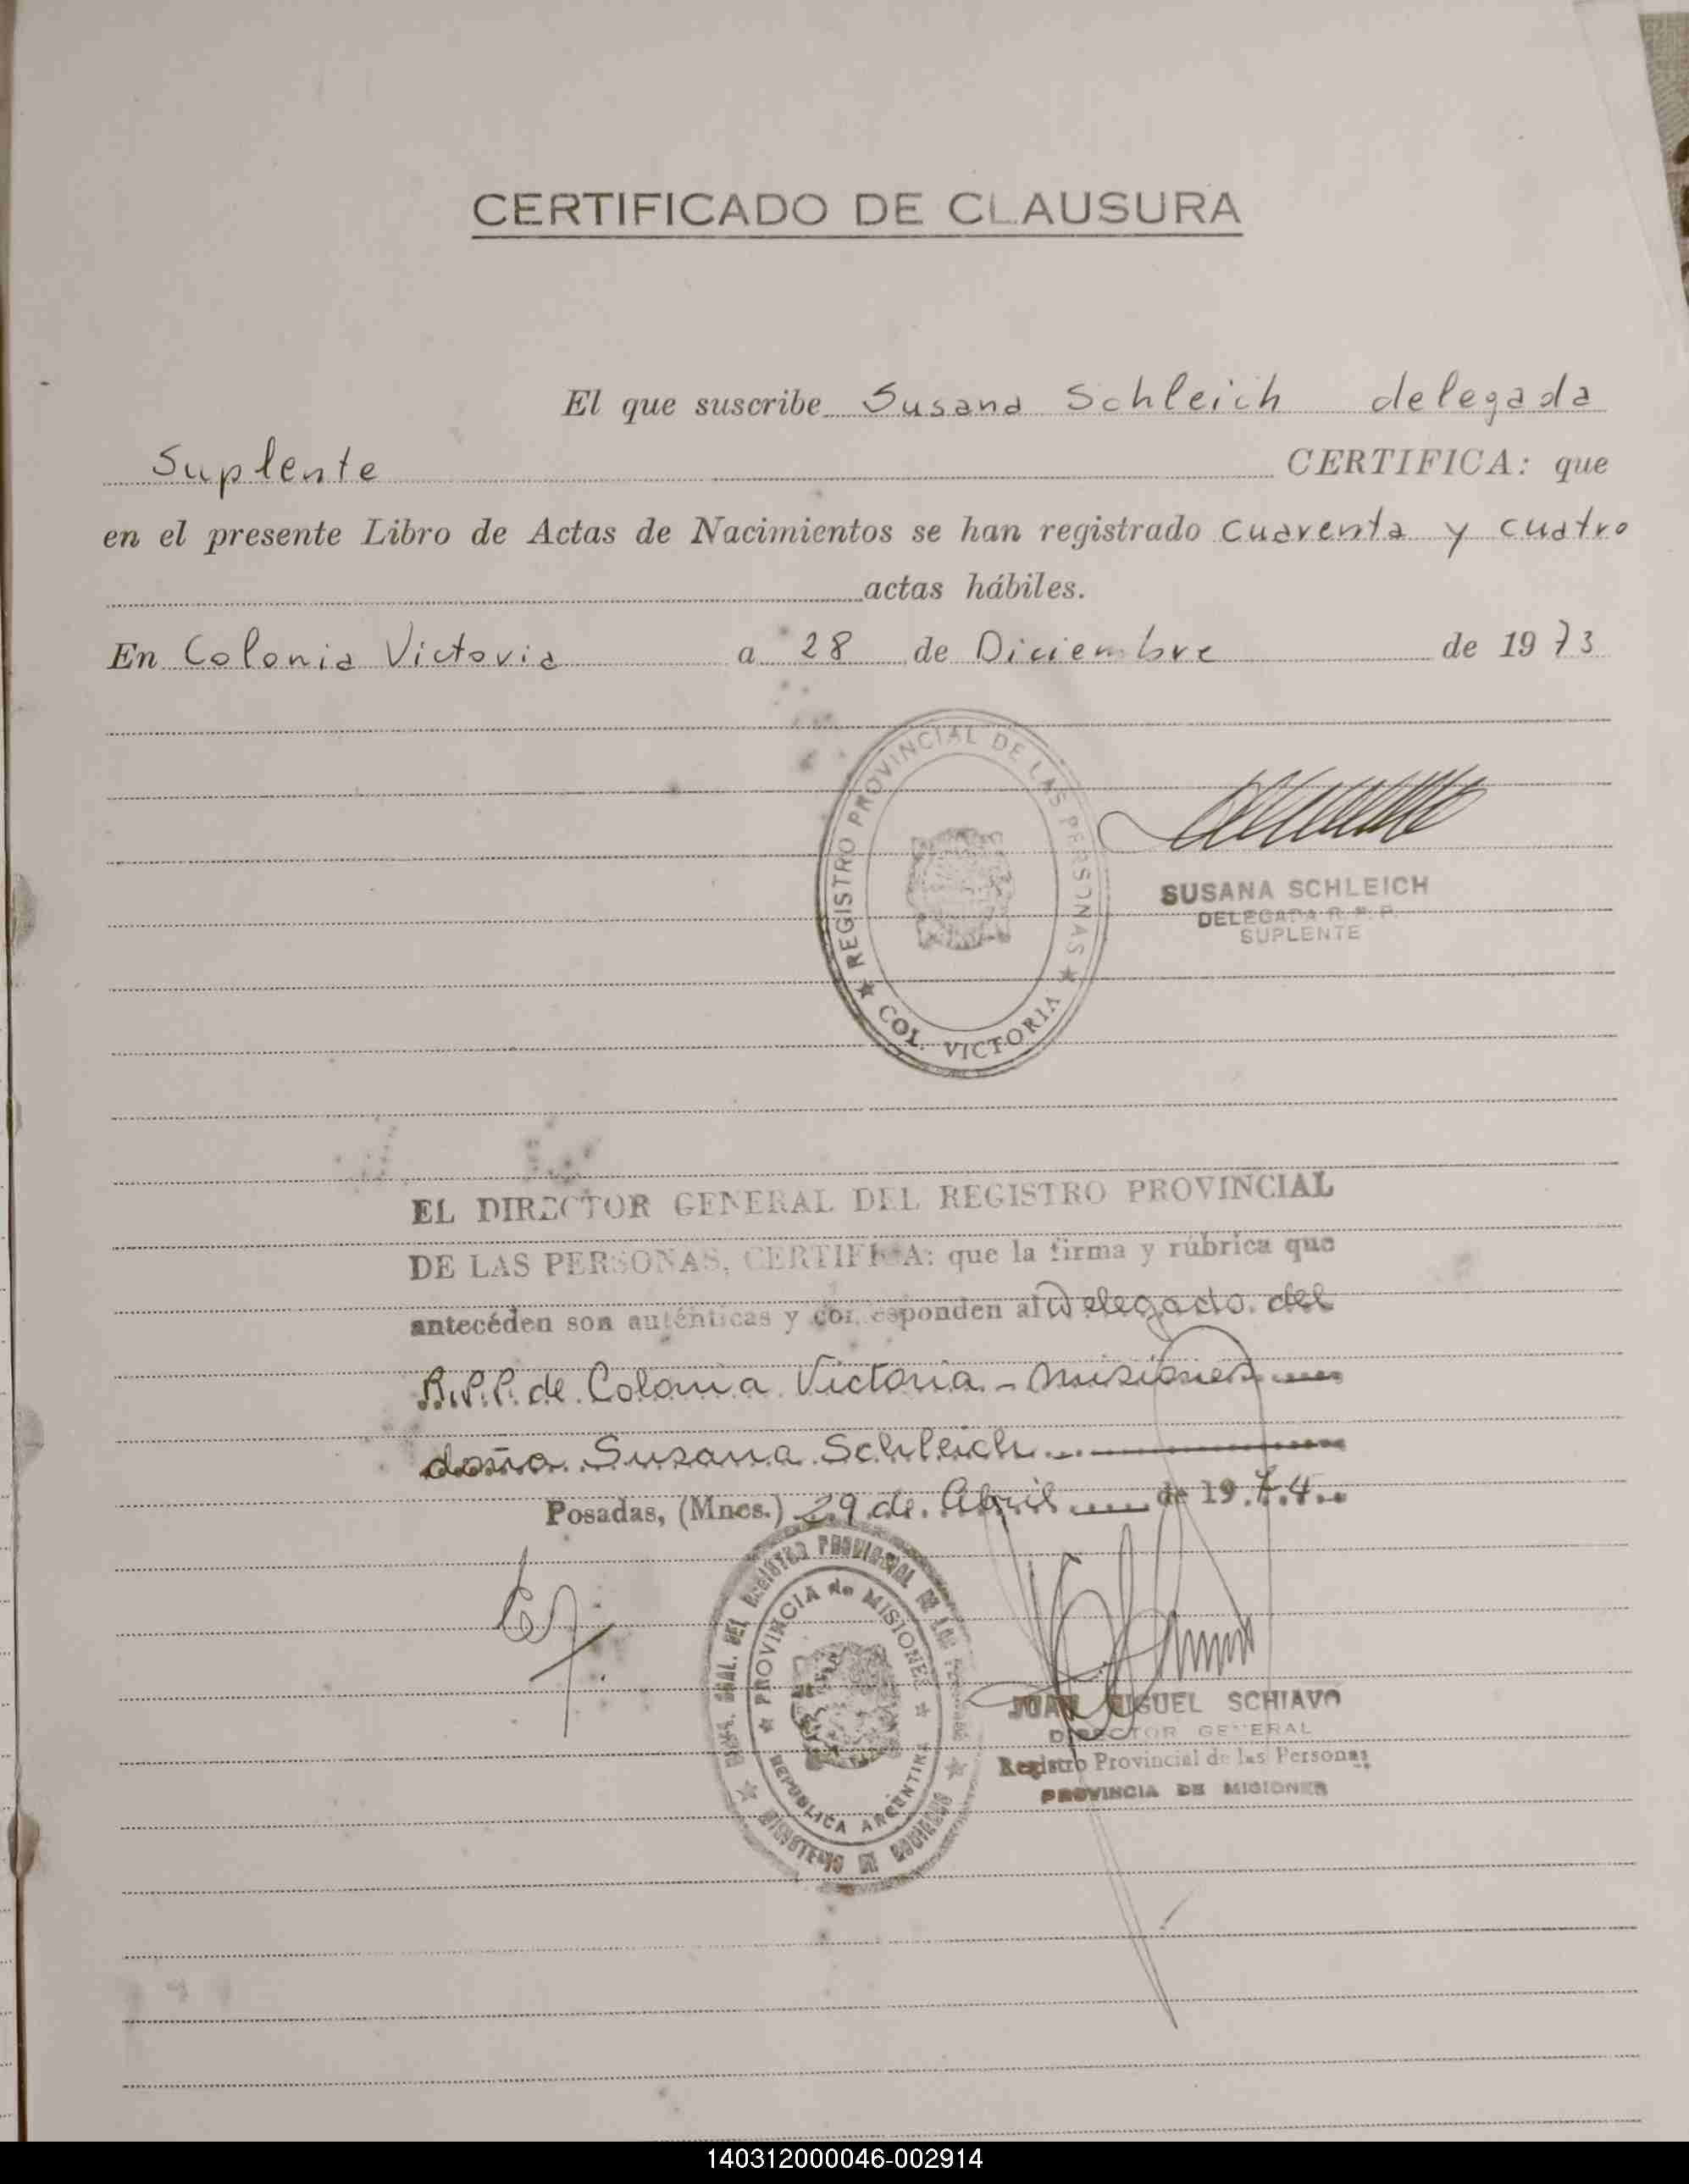 CERTIFICADO DE CLAUSURA
El que suscribe Susana Schleich delegada
Suplente CERTIFICA: que
en el presente Libro de Actas de Nacimientos se han registrado cuarenta y cuatro
actas hábiles.
En Colonia Victoria a 28 de Diciembre de 1973
REGISTRO PROVINCIAL DE LAS PERSONAS
COL. VICTORIA
SUSANA SCHLEICH
DELEGADA R. P. P.
SUPLENTE
EL DIRECTOR GENERAL DEL REGISTRO PROVINCIAL
DE LAS PERSONAS, CERTIFICA: que la firma y rúbrica que
antecéden son auténticas y corresponden al Delegado del
R.P.P. de Colonia Victoria - Misiones
doña Susana Schleich
Posadas, (Mnes.) 29 de Abril de 1974
GRAL. DEL REGISTRO PROVINCIAL DE LAS PERSONAS
MINISTERIO DE GOBIERNO
PROVINCIA de MISIONES
REPUBLICA ARGENTINA
JUAN MIGUEL SCHIAVO
DIRECTOR GENERAL
Registro Provincial de las Personas
PROVINCIA DE MISIONES
140312000046-002914